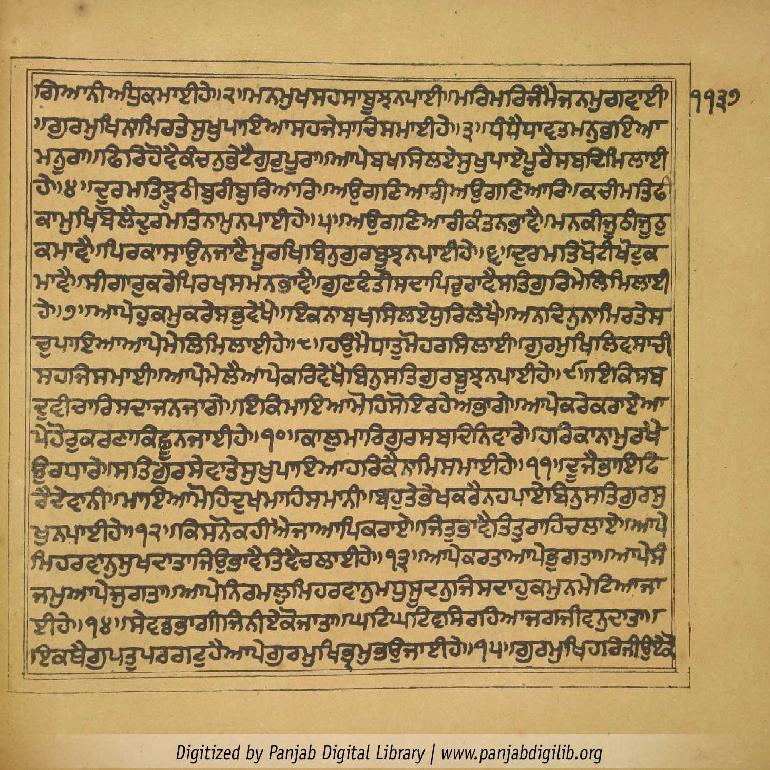 ਗਿਆਨੀਅਧੁਕਮਾਈਹੇ॥੨॥ਮਨਮੁਖਸਹਸਾਬੂਝਨਪਾਈ॥ਮਰਿਮਰਿਜੰਮੈਜਨਮੁਗਵਾਈ
੧੧੩੭
॥ਗੁਰਮੁਖਿਨਾਮਿਰਤੇਸੁਖੁਪਾਇਆਸਹਜੇਸਾਚਿਸਮਾਈਹੇ॥੩॥ਧੰਧੈਧਾਵਤਮਨੁਭਇਆ
ਮਨੂਰਾ॥ਫਿਰਿਹੋਵੈਕੰਚਨੁਭੇਟੈਗੁਰੁਪੂਰਾ॥ਆਪੇਬਖਸਿਲਏਸੁਖੁਪਾਏਪੂਰੈਸਬਦਿਮਿਲਾਈ
ਹੇ॥੪॥ਦੁਰਮਤਿਝੂਠੀਬੁਰੀਬੁਰਿਆਰਿ॥ਅਉਗਣਿਆਰੀਅਉਗਣਿਆਰਿ॥ਕਚੀਮਤਿਫੀ
ਕਾਮੁਖਿਬੋਲੈਦੁਰਮਤਿਨਾਮੁਨਪਾਈਹੇ॥੫॥ਅਉਗਣਿਆਰੀਕੰਤਨਭਾਵੈ॥ਮਨਕੀਜੂਠੀਜੂਠੁ
ਕਮਾਵੈ॥ਪਿਰਕਾਸਾਉਨਜਾਣੈਮੂਰਖਿਬਿਨੁਗੁਰਬੂਝਨਪਾਈਹੇ॥੬॥ਦੁਰਮਤਿਖੋਟੀਖੋਟੁਕ
ਮਾਵੈ॥ਸੀਗਾਰੁਕਰੇਪਿਰਖਸਮਨਭਾਵੈ॥ਗੁਣਵੰਤੀਸਦਾਪਿਰੁਰਾਵੈਸਤਿਗੁਰਿਮੇਲਿਮਿਲਾਈ
ਹੇ॥੭॥ਆਪੇਹੁਕਮੁਕਰੇਸਭੁਵੇਖੈ॥ਇਕਨਾਬਖਸਿਲਏਧੁਰਿਲੇਖੈ॥ਅਨਦਿਨੁਨਾਮਿਰਤੇਸ
ਚੁਪਾਇਆਆਪੇਮੇਲਿਮਿਲਾਈਹੇ॥੮॥ਹਉਮੈਧਾਤੁਮੋਹਰਸਿਲਾਈ॥ਗੁਰਮੁਖਿਲਿਵਸਾਚੀ
ਸਹਜਿਸਮਾਈ॥ਆਪੇਮੇਲੈਆਪੇਕਰਿਵੇਖੈਬਿਨੁਸਤਿਗੁਰਬੂਝਨਪਾਈਹੇ॥੯॥ਇਕਿਸਬ
ਦੁਵੀਚਾਰਿਸਦਾਜਨਜਾਗੇ॥ਇਕਿਮਾਇਆਮੋਹਿਸੋਇਰਹੇਅਭਾਗੇ॥ਆਪੇਕਰੇਕਰਾਏਆ
ਪੇਹੋਰੁਕਰਣਾਕਿਛੂਨਜਾਈਹੇ॥੧੦॥ਕਾਲੁਮਾਰਿਗੁਰਸਬਦਿਨਿਵਾਰੇ॥ਹਰਿਕਾਨਾਮੁਰਖੈ
ਉਰਧਾਰੇ॥ਸਤਿਗੁਰਸੇਵਾਤੇਸੁਖੁਪਾਇਆਹਰਿਕੈਨਾਮਿਸਮਾਈਹੇ॥੧੧॥ਦੂਜੈਭਾਇਫਿ
ਰੈਦੇਵਾਨੀ॥ਮਾਇਆਮੋਹਿਦੁਖਮਾਹਿਸਮਾਨੀ॥ਬਹੁਤੇਭੇਖਕਰੈਨਹਪਾਏਬਿਨੁਸਤਿਗੁਰਸੁ
ਖੁਨਪਾਈਹੇ॥੧੨॥ਕਿਸਨੋਕਹੀਐਜਾਆਪਿਕਰਾਏ॥ਜਿਤੁਭਾਵੈਤਿਤੁਰਾਹਿਚਲਾਏ॥ਆਪੇ
ਮਿਹਰਵਾਨੁਸੁਖਦਾਤਾਜਿਉਭਾਵੈਤਿਵੈਚਲਾਈਹੇ॥੧੩॥ਆਪੇਕਰਤਾਆਪੇਭੁਗਤਾ॥ਆਪੇਸੰ
ਜਮੁਆਪੇਜੁਗਤਾ॥ਆਪੇਨਿਰਮਲੁਮਿਹਰਵਾਨੁਮਧੁਸੂਦਨੁਜਿਸਦਾਹੁਕਮੁਨਮੇਟਿਆਜਾ
ਈਹੇ॥੧੪॥ਸੇਵਡਭਾਗੀਜਿਨੀਏਕੋਜਾਤਾ॥ਘਟਿਘਟਿਵਸਿਰਹਿਆਜਗਜੀਵਨੁਦਾਤਾ॥
ਇਕਥੈਗੁਪਤੁਪਰਗਟੁਹੈਆਪੇਗੁਰਮੁਖਿਭ੍ਰਮੁਭਉਜਾਈਹੇ॥੧੫॥ਗੁਰਮੁਖਿਹਰਿਜੀਉਏਕੋ
Digitized by Panjab Digital Library | www.panjabdigilib.org